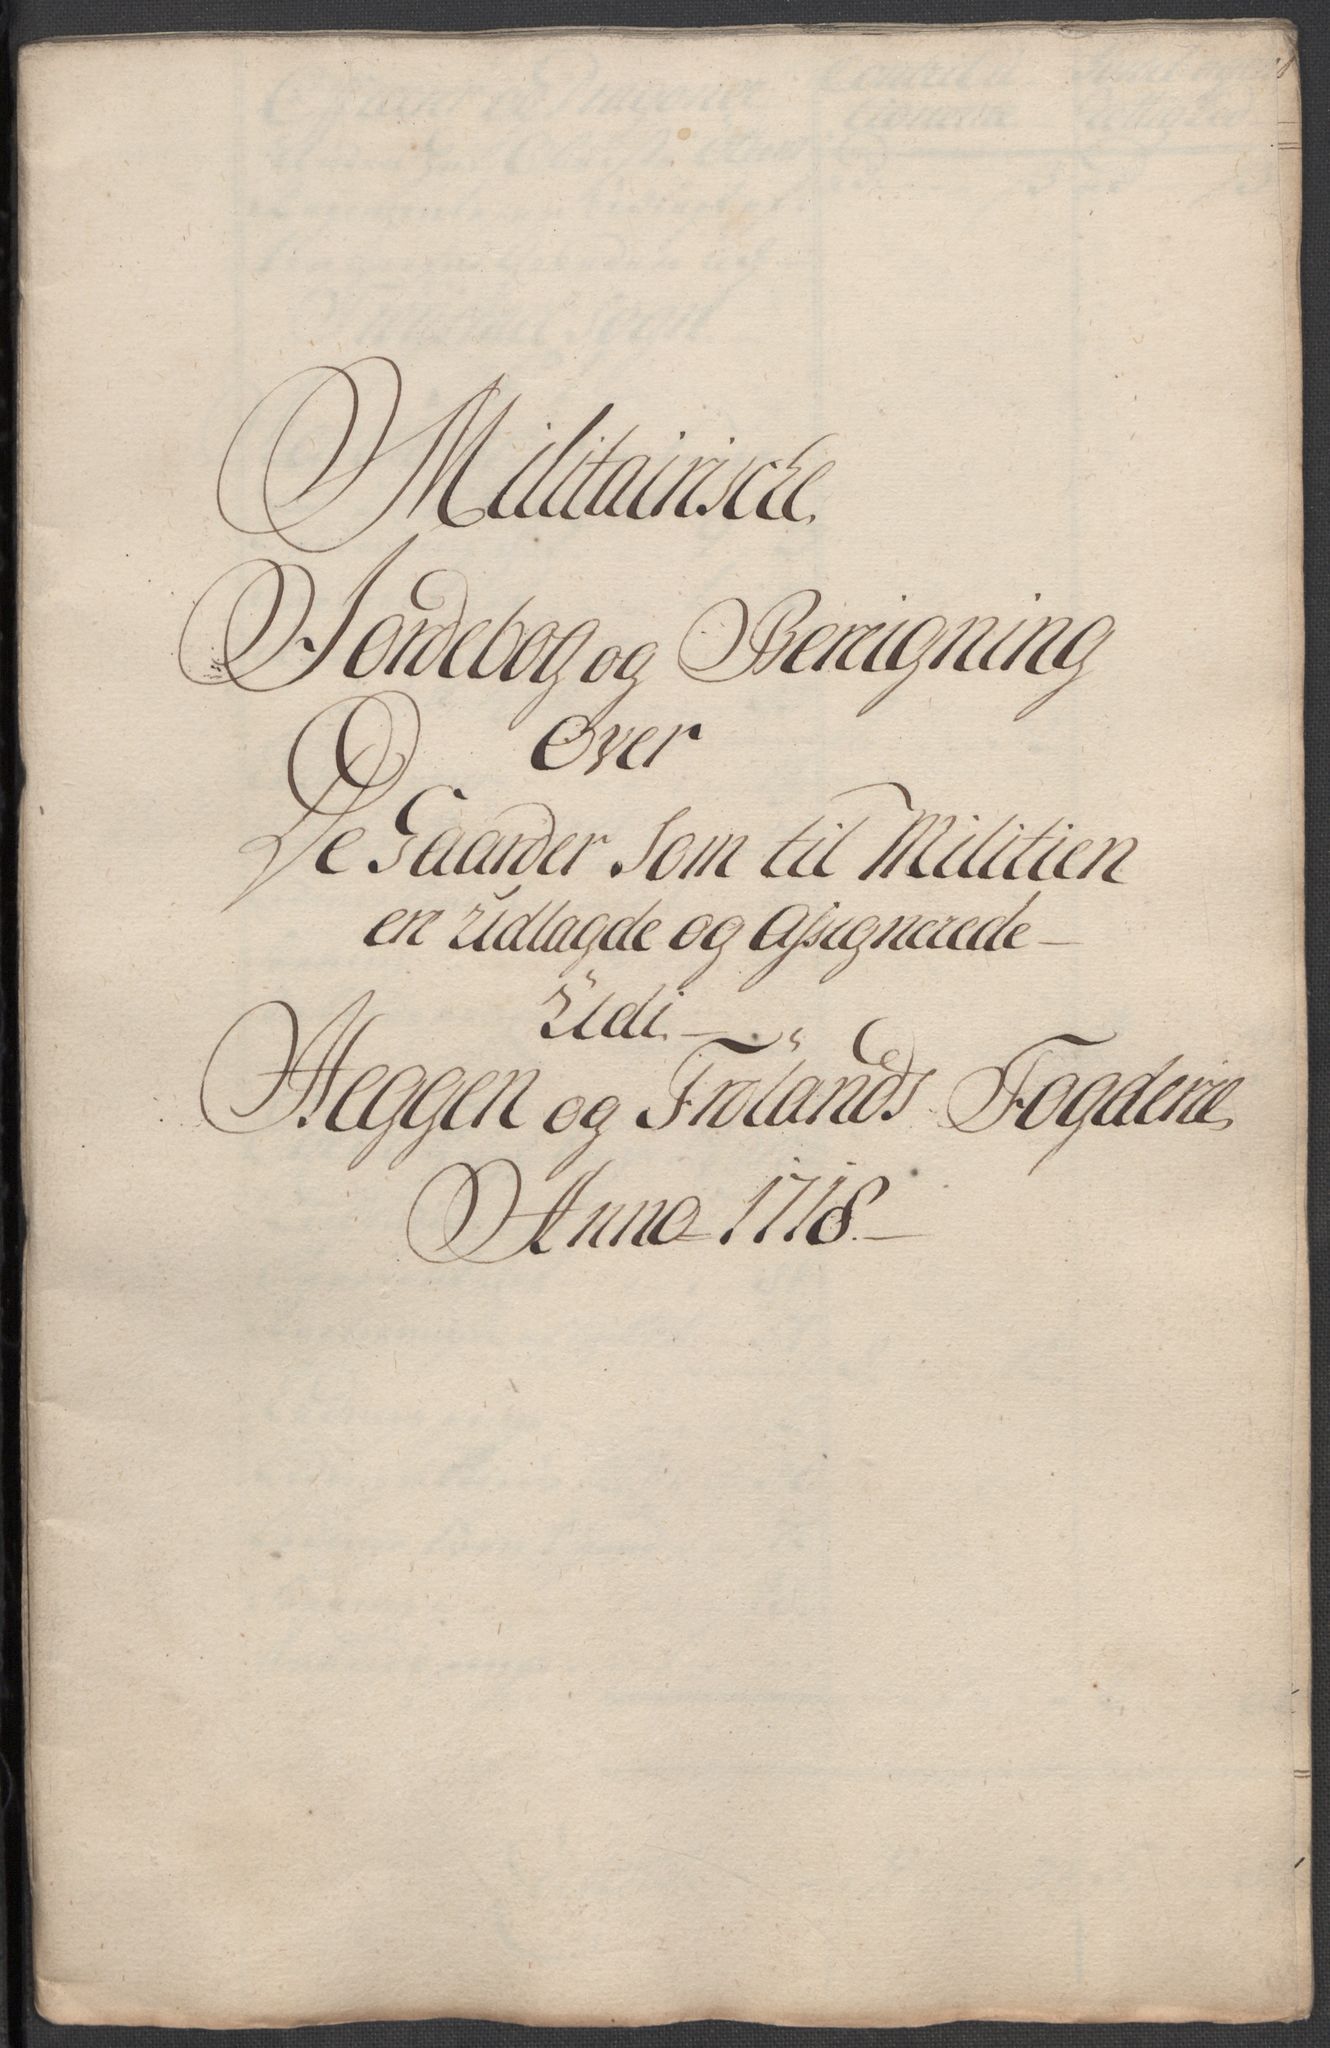 Militairische
Jordebog og Bereigning
Over
De Gaarder som til Militien
ere Udlagde og Assignerede
Udi
Heggen og Frølands Fogderie
Anno 1718